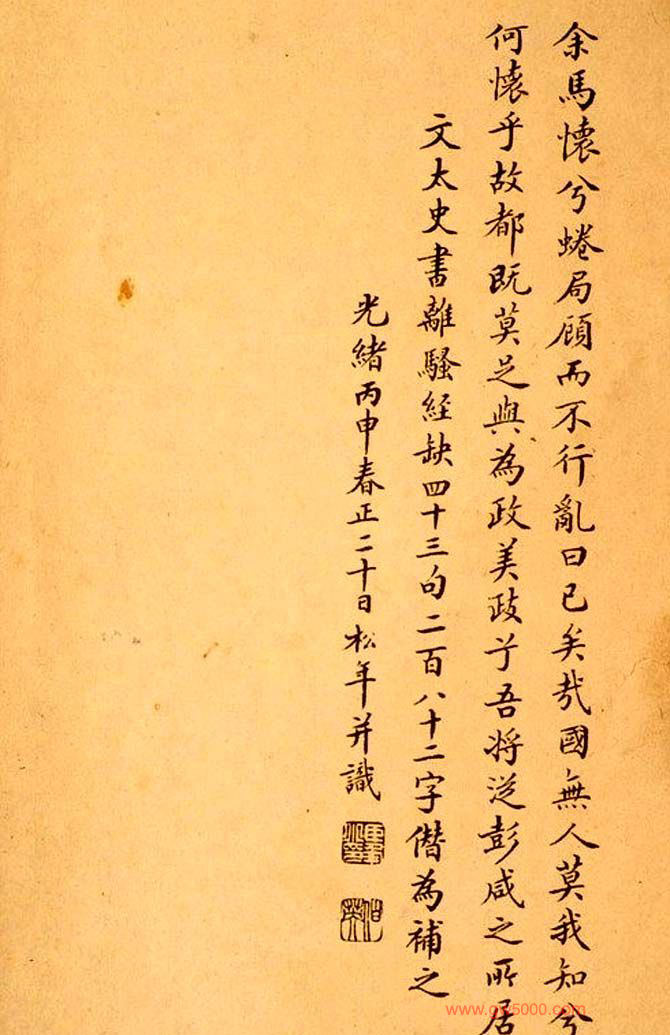 余馬懷兮蜷局顧而不行亂曰已矣哉國無人莫我知兮
何懷乎故都既莫足與為政美政兮吾將從彭咸之所居
文太史書離騷經缺四十三句二百八十二字僭為補之
光緒丙申春正二十日松年并識
www.gw5000.com